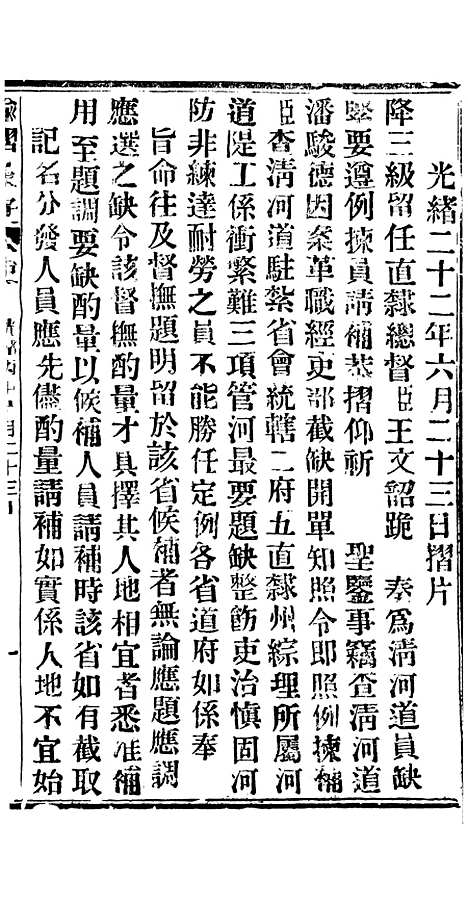 光緒二十二年六月二十三日摺片
降三級留任直隸總督臣王文韶跪 奏爲淸河道員缺
緊要遵例揀員請補恭摺仰祈 聖鑒事竊查淸河道
潘駿德因案革職經吏部截缺開單知照令卽照例揀補
臣查淸河道駐紮省會統轄二府五直隸州綜理所屬河
道隄工係衝繁難三項管河最要題缺整飭吏治愼固河
防非練達耐勞之員不能勝任定例各省道府如係奉
旨命往及督撫題明留於該省候補者無論應題應調
應選之缺令該督撫酌量才具擇其人地相宜者悉准補
用至題調要缺酌量以候補人員請補時該省如有截取
記名分發人員應先儘酌量請補如實係人地不宜始
諭摺彙存
一